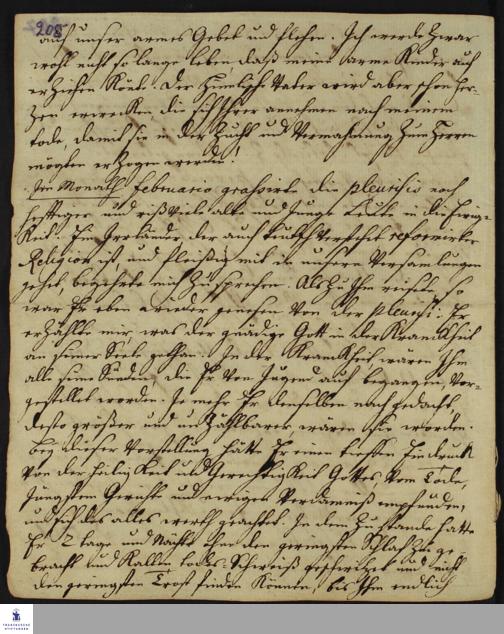 208
auch unser armes Gebet und flehen. Ich werde zwar
wohl nicht so lange leben, daß meine arme Kinder auch
erziehen könte. Der Himlische Vater wird aber schon Her-
zen erwecken, die sich Ihrer annehmen nach meinem
tode, damit sie in der Zucht und Vermahnung zum Herren
mögten erzogen werden!
Im Monath Februario grassirte die pleurisie noch
hefftiger und riß viele alte und Junge Leute in die Ewig-
keit. Ein Irrländer, der auch teutsch verstehet reformirter
Religion ist, und fleißig mit in unsere Versamlungen
gehet, begehrte mich zu sprechen. Als zu Ihm reisete, so
war Er eben wieder genesen von der pleuresi. Er
erzählte mir, was der gnädige Gott in der Kranckheit
an seiner Seele gethan. In der Kranckheit wären Ihm
alle seine Sünden, die Er von Jugend auf begangen, vor-
gestellet worden. Je mehr Er denselben nach gedacht
desto größer und unzählbarer waren sie worden.
bey dieser Vorstellung hätte Er einen tieffen Eindruck
von der Heiligkeit und Gerechtigkeit Gottes, vom Tode,
Jüngsten Gerichte und ewigen Verdamniß empfunden,
und sich des alles werth geachtet. In dem Zustande hatte
Er 2 tage und Nächte ohne den geringsten Schlaf zu ge-
bracht und kalten todes-Schweiß geschwitzet und nicht
den geringsten Trost finden können, bis Ihm endlich
FRANCKESCHE STIFTUNGEN